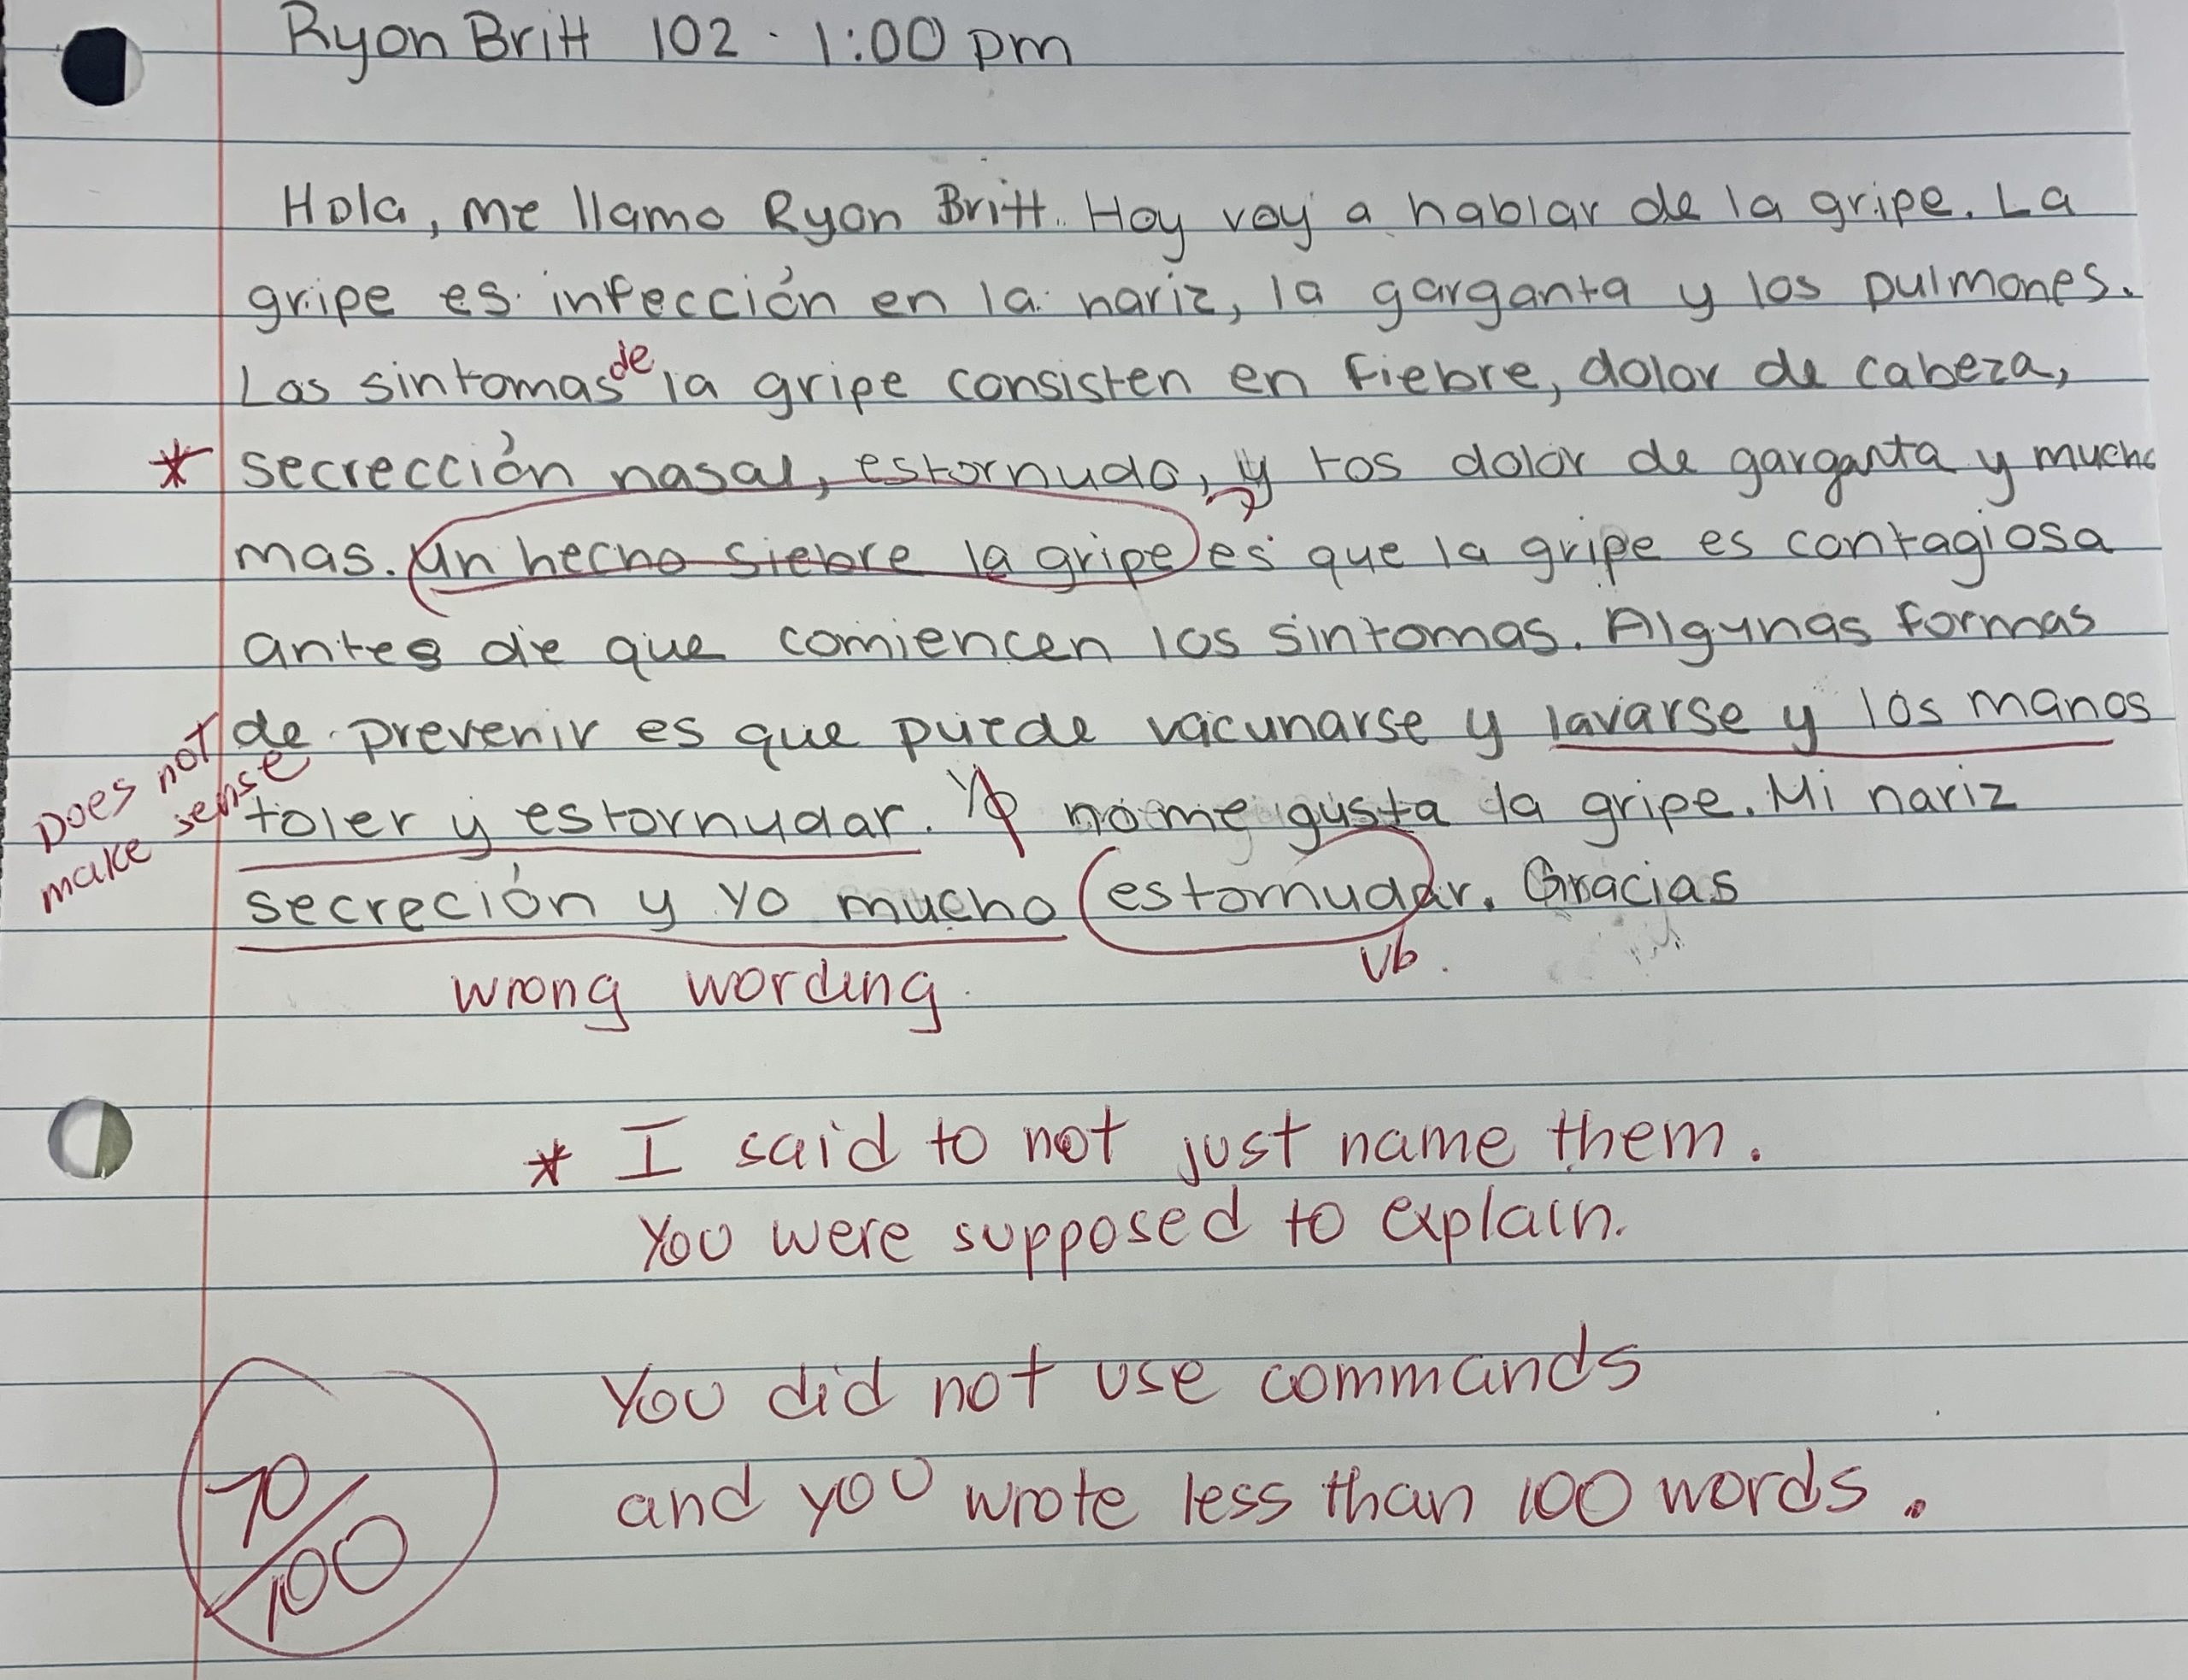 Ryon Britt 102 · 1:00 pm
Hola, me llamo Ryon Britt. Hoy voy a hablar de la gripe. La
gripe es infección en la nariz, la garganta y los pulmones.
Los sintomas de la gripe consisten en fiebre, dolor de cabeza,
* secrección nasal, estornudo, y tos dolor de garganta y mucho
mas. Un hecho siebre la gripe es que la gripe es contagiosa
?
antes de que comiencen los sintomas. Algunas formas
de prevenir es que puede vacunarse y lavarse y los manos
Does not make sense
toler y estornudar. Yo no me gusta la gripe. Mi nariz
secreción y yo mucho estornudar. Gracias
vb.
wrong wording
* I said to not just name them.
You were supposed to explain.
You did not use commands
and you wrote less than 100 words.
70/100